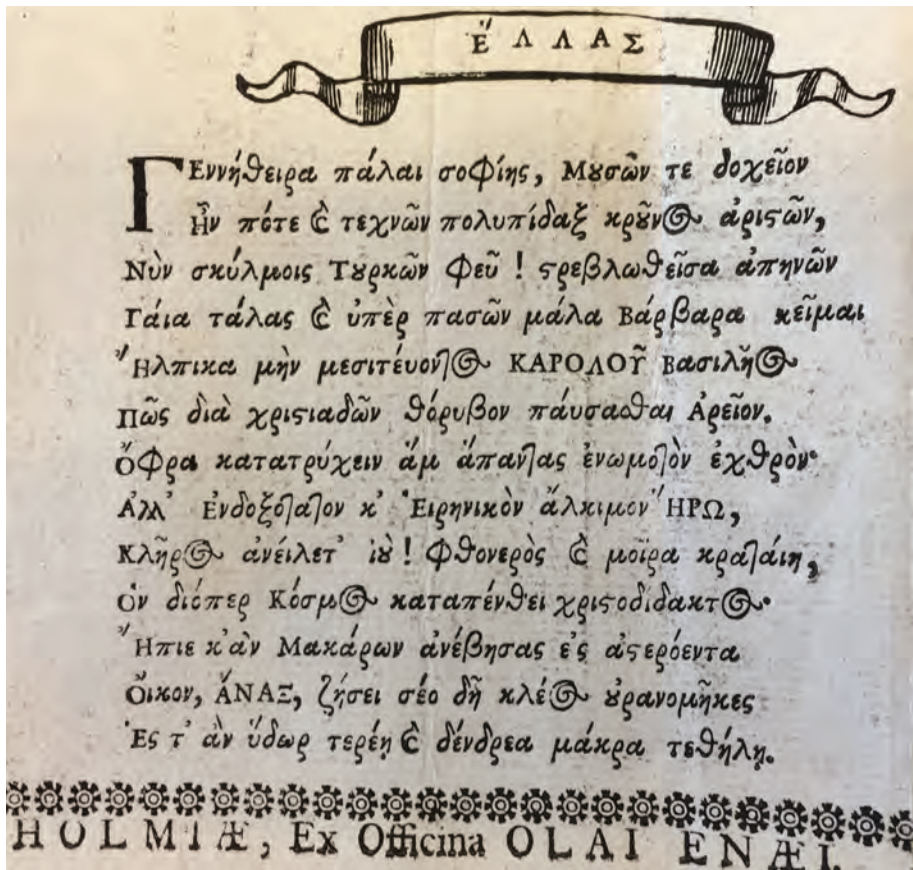 ἝΛΛΑΣ
ΓΕννήθειρα πάλαι σοφίης, Μȣσῶν τε δοχεῖον
Ἣν πότε ϗ τεχνῶν πολυπίδαξ κρȣ͂νος ἀρίϛων,
Νὺν σκύλμοις Τȣρκῶν φεῦ ! ϛρεβλωθεῖσα ἀπηνῶν
Γάια τάλας ϗ ὑπὲρ πασῶν μάλα Βάρβαρα κεῖμαι
Ἤλπικα μὴν μεσιτέυοντος ΚΑΡΟΛΟΥ͂ Βασιλῆος
Πῶς διὰ χριϛιαδῶν θόρυβον πάυσασθαι Ἀρεῖον.
Ὄφρα κατατρύχειν ἅμ ἅπαντας ἐνωμοτὸν ἐχθρὸν·
Ἀλλ' Ἐνδοξότατον κ' Ἐιρηνικὸν ἄλκιμον ἭΡΩ,
Κλῆρος ἀνέιλετ' ἰȣ̀ ! φθονερὸς ϗ μοῖρα κρατάιη,
Ὁν διόπερ Κόσμος καταπένθει χριϛοδιδακτος·
Ἤπιε κ'ἀν Μακάρων ἀνέβησας ἐς ἀϛερόεντα
Ὄικον, ἌΝΑΞ, ζήσει σέο δῆ κλέος ȣ̓ρανομῆκες
Ἐς τ' ἀν ὕδωρ τερέῃ ϗ δένδρεα μάκρα τεθήλῃ.
HOLMIÆ, Ex Officina OLAI ENÆI.